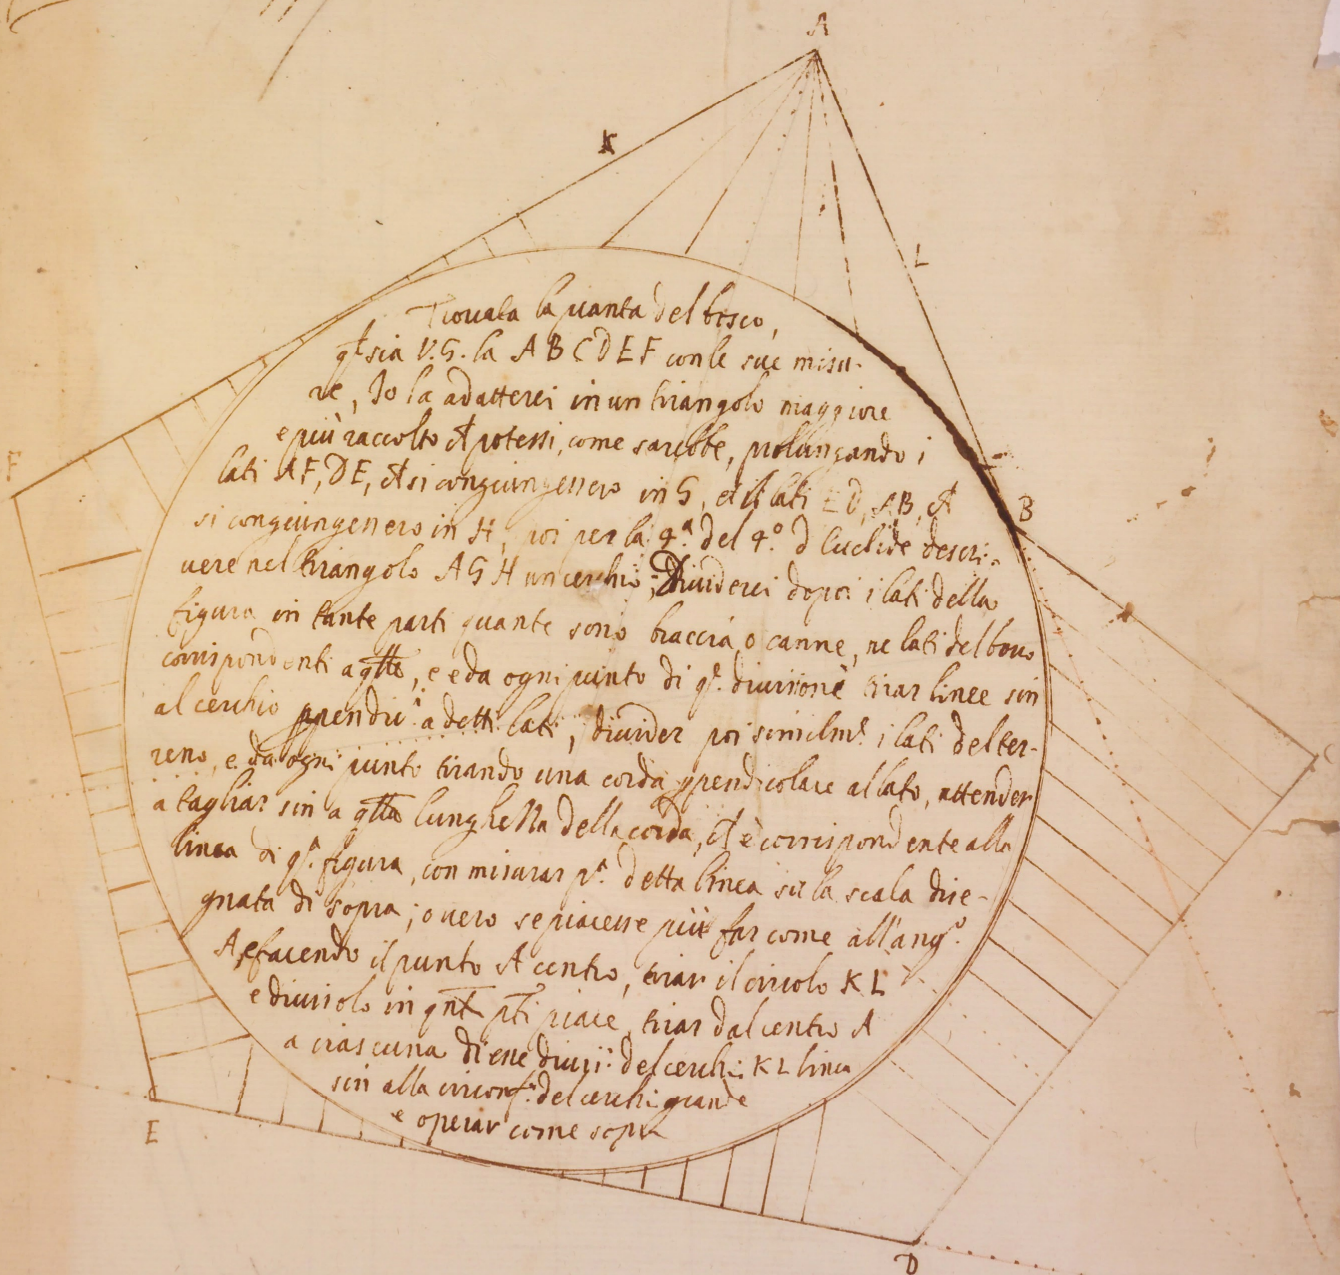 A
K
L
F
Trovata la pianta del bosco,
q.l sia V.G. la A B C D E F con le sue misu-
re, Io la adatterei in un triangolo maggiore
e più raccolto ch potessi, come sarebbe, prolungando i
lati AF, DE, ch si congiungessero in G, et li lati ED, AB, ch
B
si congiungessero in H, poi per la 4.a del 4.o d'Euclide descri-
vere nel triangolo A G H un cerchio; Dividerei dopoi i lati della
figura in tante parti quante sono braccia, o canne, ne lati del bosco
corrispondenti a qlle, e da ogni punto di q.e divisione tirar linee sin
al cerchio ppendic.i a detti lati, divider poi similm.e i lati del ter-
C
reno, e da ogni punto tirando una corda ppendicolare al lato, attender
a tagliar sin a qlla lunghezza della corda, ch è corrispondente alla
linea di q.a figura, con misurar p.a detta linea su la scala dise-
gnata di sopra; overo se piacesse più far come all'ang.o
A, e facendo il punto A centro, tirar il circolo K L
e divisolo in qnte pti piace, tirar dal centro A
a ciascuna di esse divis.i del cerchio K L linea
sin alla circonf.a del cerchio grande
e operar come sopra
E
D